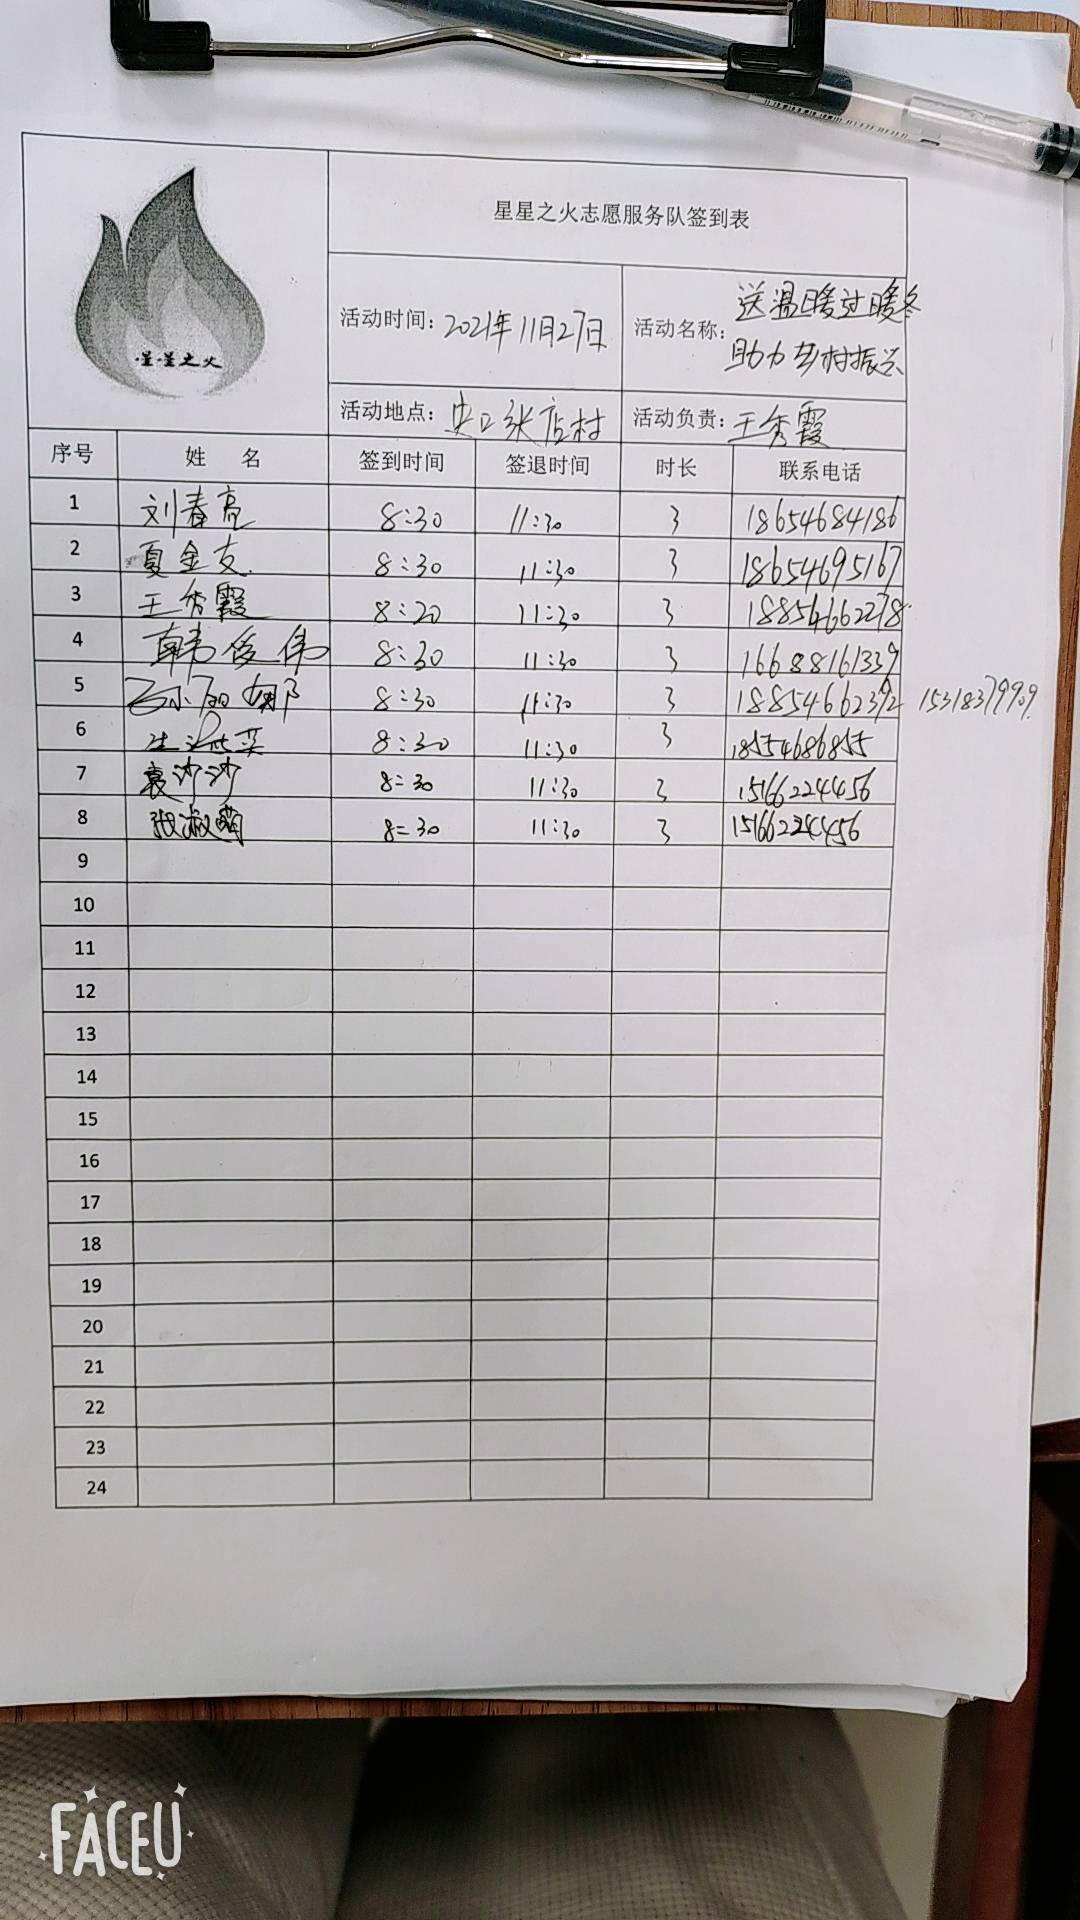 星星之火志愿服务队签到表
星星之火
活动时间: 2021年11月27日
活动名称: 送温暖过暖冬
助力乡村振兴
活动地点: 史口张店村
活动负责: 王秀霞
序号 姓 名 签到时间 签退时间 时长 联系电话
1 刘春亮 8:30 11:30 3 18654684186
2 夏金友 8:30 11:30 3 18654695167
3 王秀霞 8:20 11:30 3 18854662278
4 韩俊伟 8:30 11:30 3 16688161339
5 8:30 11:30 3 18854662392 15318379909
6 8:30 11:30 3 18554686855
7 袁沙沙 8:30 11:30 3 15166224456
8 张淑菊 8:30 11:30 3 15166224456
9
10
11
12
13
14
15
16
17
18
19
20
21
22
23
24
FACEU